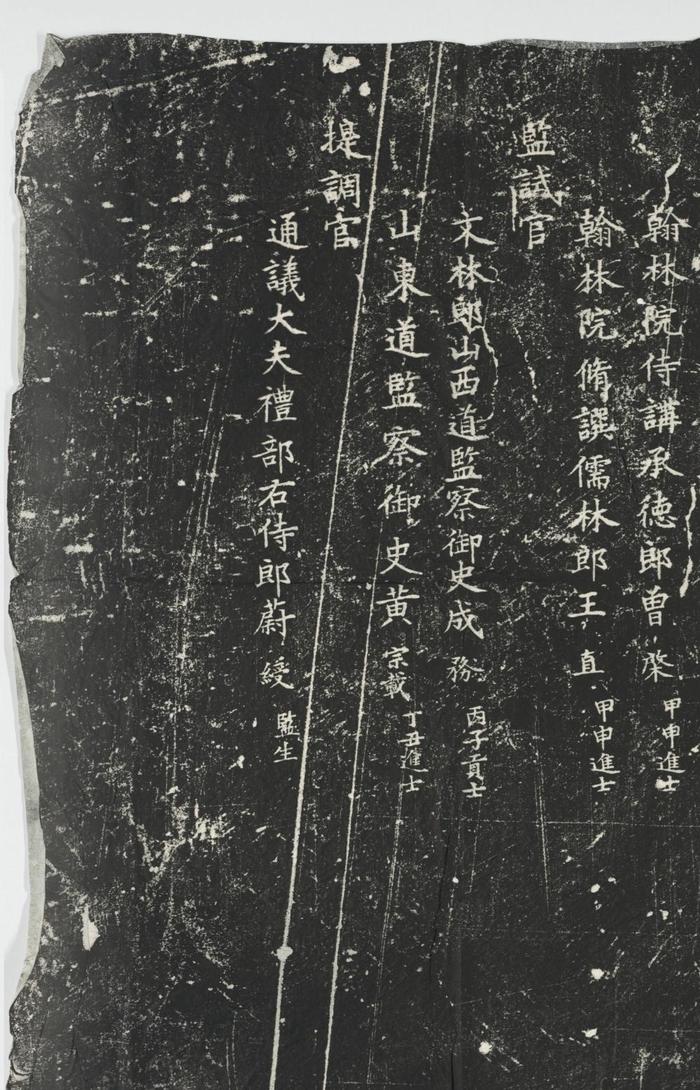 翰林院侍講承德郎曾棨甲申進士
翰林院脩譔儒林郎王直甲申進士
監試官
文林郎山西道監察御史成務丙子貢士
山東道監察御史黃宗載丁丑進士
提調官
通議大夫禮部右侍郎蔚綬監生